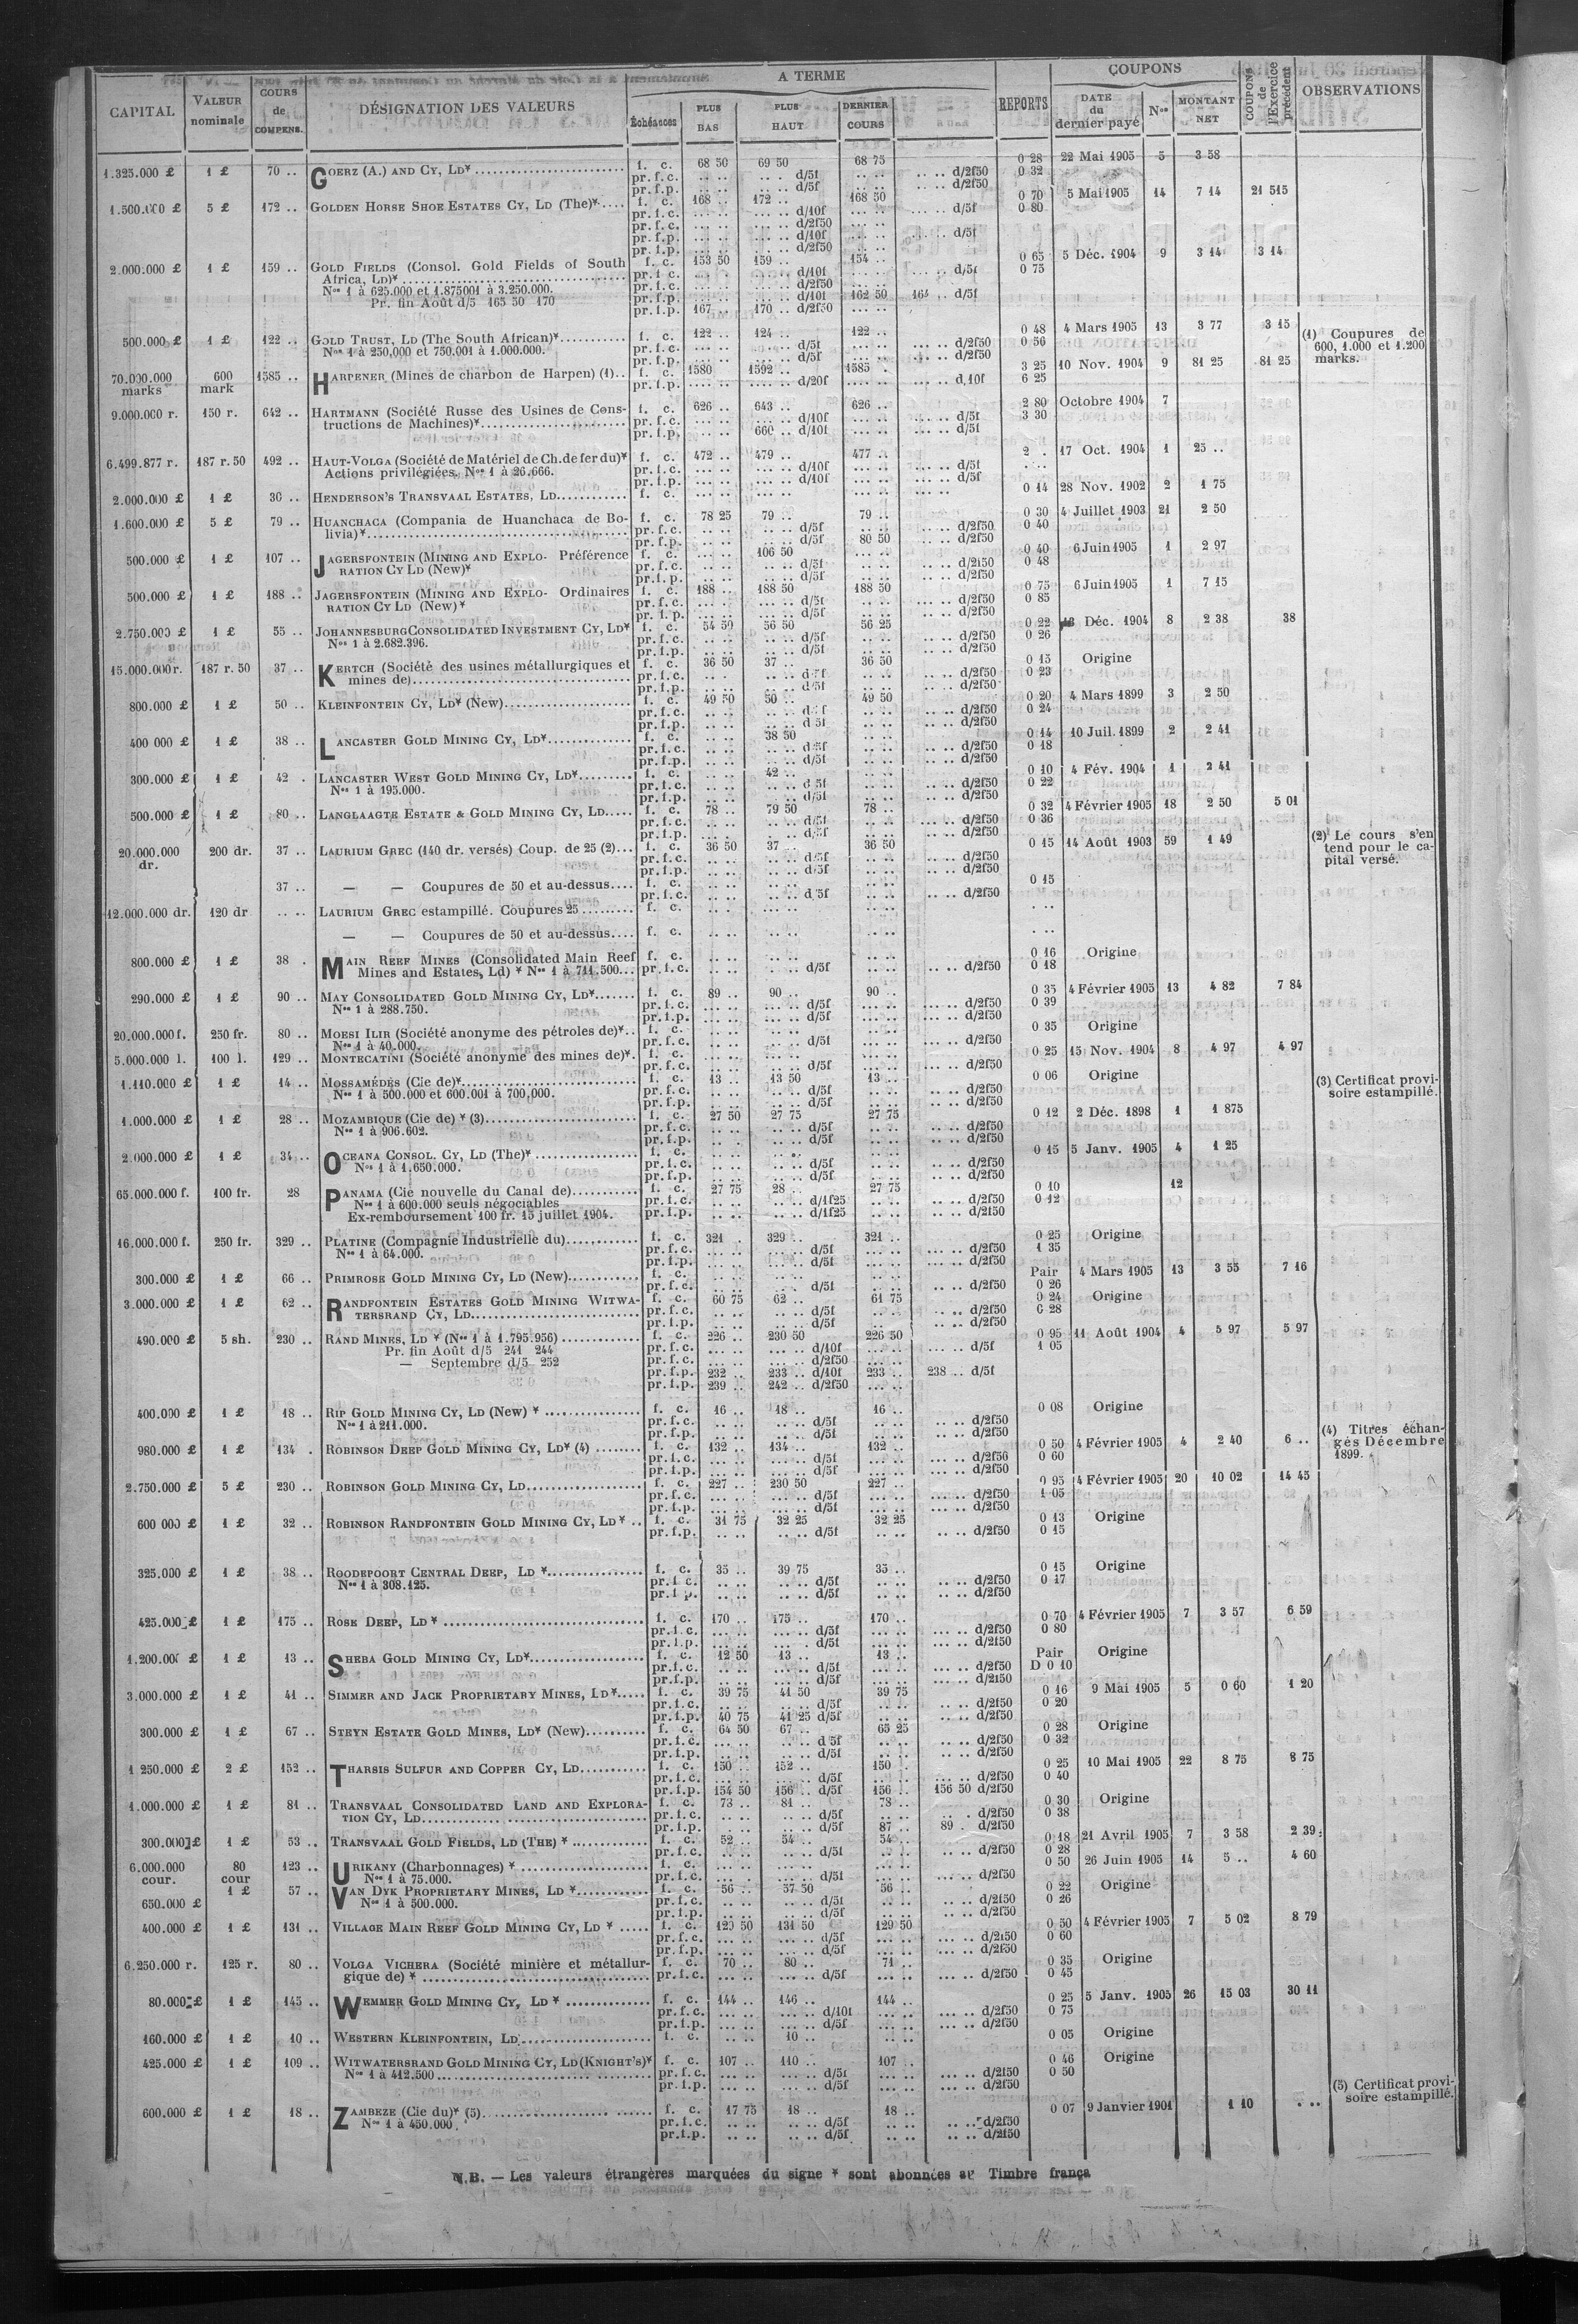 CAPITAL | VALEUR nominale | COURS de COMPENS. | DÉSIGNATION DES VALEURS | A TERME | REPORTS | COUPONS | COUPONS de l'Exercice précédent | OBSERVATIONS
Échéances | PLUS BAS | PLUS HAUT | DERNIER COURS | DATE du dernier payé | Nos | MONTANT NET
1.325.000 £ 1 £ 70 .. GOERZ (A.) AND CY, LD* f. c. 68 50 69 50 68 75 0 28 22 Mai 1905 5 3 58
pr. f.c. .. .. .. .. d/5f .. .. .. .. d/2f50 0 32
pr. f.p. .. .. .. .. d/5f .. .. .. .. d/2f50
1.500.000 £ 5 £ 172 .. GOLDEN HORSE SHOE ESTATES CY, LD (The)* f. c. 168 .. 172 .. 168 50 0 70 5 Mai 1905 14 7 14 21 515
pr. f.c. d/10f d/5f 0 80
pr. f.c. d/2f50
pr. f.p. d/10f d/5f
pr. f.p. d/2f50
2.000.000 £ 1 £ 159 .. GOLD FIELDS (Consol. Gold Fields of South f. c. 153 50 159 .. 154 .. 0 65 5 Déc. 1904 9 3 14 3 14
Africa, LD)* pr. f.c. d/10f d/5f 0 75
Nos 1 à 625.000 et 1.875001 à 3.250.000. pr. f.c. d/2f50
Pr. fin Août d/5 165 50 170 pr. f.p. d/10f 162 50 164 .. d/5f
pr. f.p. 167 .. 170 .. d/2f50
500.000 £ 1 £ 122 .. GOLD TRUST, LD (The South African)* f. c. 122 .. 124 .. 122 .. 0 48 4 Mars 1905 13 3 77 3 15 (1) Coupures de
Nos 1 à 250,000 et 750,001 à 1.000.000. pr. f.c. d/5f d/2f50 0 56 600, 1.000 et 1.200
pr. f.p. d/5f d/2f50 marks.
70.000.000 marks 600 mark 1585 .. HARPENER (Mines de charbon de Harpen) (1) f. c. 1580 1592 .. 1585 . 3 25 10 Nov. 1904 9 81 25 81 25
pr. f.p. d/20f d/10f 6 25
9.000.000 r. 150 r. 642 .. HARTMANN (Société Russe des Usines de Cons- f. c. 626 .. 643 .. 626 .. 2 80 Octobre 1904 7
tructions de Machines)* pr. f.c. d/10f d/5f 3 30
pr. f.p. 660 .. d/10f d/5f
6.499.877 r. 187 r. 50 492 .. HAUT-VOLGA (Société de Matériel de Ch. de fer du)* f. c. 472 .. 479 .. 477 .. 2 . 17 Oct. 1904 1 25 ..
Actions privilégiées, Nos 1 à 26.666. pr. f.c. d/10f d/5f
pr. f.p. d/10f d/5f
2.000.000 £ 1 £ 30 .. HENDERSON'S TRANSVAAL ESTATES, LD f. c. 0 14 28 Nov. 1902 2 1 75
1.600.000 £ 5 £ 79 .. HUANCHACA (Compania de Huanchaca de Bo- f. c. 78 25 79 .. 79 .. 0 30 4 Juillet 1903 21 2 50
livia)* pr. f.c. d/5f d/2f50 0 40
pr. f.p. d/5f 80 50 d/2f50
500.000 £ 1 £ 107 .. JAGERSFONTEIN (MINING AND EXPLO- Préférence f. c. 106 50 0 40 6 Juin 1905 1 2 97
RATION CY LD (New)* pr. f.c. d/5f d/2f50 0 48
pr. f.p. d/5f d/2f50
500.000 £ 1 £ 188 .. JAGERSFONTEIN (MINING AND EXPLO- Ordinaires f. c. 188 .. 188 50 188 50 0 75 6 Juin 1905 1 7 15
RATION CY LD (New)* pr. f.c. d/5f d/2f50 0 85
pr. f.p. d/5f d/2f50
2.750.000 £ 1 £ 55 .. JOHANNESBURG CONSOLIDATED INVESTMENT CY, LD* f. c. 54 50 56 50 56 25 0 22 Déc. 1904 8 2 38 38
Nos 1 à 2.682.396. pr. f.c. d/5f d/2f50 0 26
pr. f.p. d/5f d/2f50
15.000.000 r. 187 r. 50 37 .. KERTCH (Société des usines métallurgiques et f. c. 36 50 37 .. 36 50 0 15 Origine
mines de) pr. f.c. d/5f d/2f50 0 23
pr. f.p. d/5f d/2f50
800.000 £ 1 £ 50 .. KLEINFONTEIN CY, LD* (New) f. c. 49 50 50 .. 49 50 0 20 4 Mars 1899 3 2 50
pr. f.c. d/5f d/2f50 0 24
pr. f.p. d/5f d/2f50
400 000 £ 1 £ 38 .. LANCASTER GOLD MINING CY, LD* f. c. 38 50 0 14 10 Juil. 1899 2 2 41
pr. f.c. d/5f d/2f50 0 18
pr. f.p. d/5f d/2f50
300.000 £ 1 £ 42 . LANCASTER WEST GOLD MINING CY, LD* f. c. 42 .. 0 10 4 Fév. 1904 1 2 41
Nos 1 à 195.000. pr. f.c. d/5f d/2f50 0 22
pr. f.p. d/5f d/2f50
500.000 £ 1 £ 80 .. LANGLAAGTE ESTATE & GOLD MINING CY, LD f. c. 78 .. 79 50 78 .. 0 32 4 Février 1905 18 2 50 5 01
pr. f.c. d/5f d/2f50 0 36
pr. f.p. d/5f d/2f50 (2) Le cours s'en
20.000.000 dr. 200 dr. 37 .. LAURIUM GREC (140 dr. versés) Coup. de 25 (2) f. c. 36 50 37 .. 36 50 0 15 14 Août 1903 59 1 49 tend pour le ca-
pr. f.c. d/5f d/2f50 pital versé.
pr. f.p. d/5f d/2f50
37 .. — — Coupures de 50 et au-dessus f. c. 0 15
pr. f.c. d/5f d/2f50
12.000.000 dr. 120 dr .. .. LAURIUM GREC estampillé. Coupures 25 f. c.
— — Coupures de 50 et au-dessus f. c.
800.000 £ 1 £ 38 . MAIN REEF MINES (Consolidated Main Reef f. c. 0 16 Origine
Mines and Estates, Ld) * Nos 1 à 711.500 pr. f.c. d/5f d/2f50 0 18
290.000 £ 1 £ 90 .. MAY CONSOLIDATED GOLD MINING CY, LD* f. c. 89 .. 90 .. 90 .. 0 35 4 Février 1905 13 4 82 7 84
Nos 1 à 288.750. pr. f.c. d/5f d/2f50 0 39
pr. f.p. d/5f d/2f50
20.000.000 f. 250 fr. 80 .. MOESI ILIR (Société anonyme des pétroles de)* f. c. 0 35 Origine
Nos 1 à 40.000. pr. f.c. d/5f d/2f50
5.000.000 l. 100 l. 129 .. MONTECATINI (Société anonyme des mines de)* f. c. 0 25 15 Nov. 1904 8 4 97 4 97
pr. f.c. d/5f d/2f50
1.110.000 £ 1 £ 14 .. MOSSAMÉDÈS (Cie de)* f. c. 13 .. 13 50 13 .. 0 06 Origine (3) Certificat provi-
Nos 1 à 500.000 et 600.001 à 700,000. pr. f.c. d/5f d/2f50 soire estampillé.
pr. f.p. d/5f d/2f50
1.000.000 £ 1 £ 28 .. MOZAMBIQUE (Cie de) * (3) f. c. 27 50 27 75 27 75 0 12 2 Déc. 1898 1 1 875
Nos 1 à 906.602. pr. f.c. d/5f d/2f50
pr. f.p. d/5f d/2f50
2.000.000 £ 1 £ 34 .. OCEANA CONSOL. CY, LD (The)* f. c. 0 15 5 Janv. 1905 4 1 25
Nos 1 à 1.650.000. pr. f.c. d/5f d/2f50
pr. f.p. d/5f d/2f50
65.000.000 f. 100 fr. 28 PANAMA (Cie nouvelle du Canal de) f. c. 27 75 28 .. 27 75 0 10 12
Nos 1 à 600.000 seuls négociables pr. f.c. d/1f25 d/2f50 0 12
Ex-remboursement 100 fr. 15 juillet 1904. pr. f.p. d/1f25 d/2f50
16.000.000 f. 250 fr. 329 .. PLATINE (Compagnie Industrielle du) f. c. 321 . 329 .. 321 .. 0 25 Origine
Nos 1 à 64.000. pr. f.c. d/5f d/2f50 1 35
pr. f.p. d/5f d/2f50
300.000 £ 1 £ 66 .. PRIMROSE GOLD MINING CY, LD (New) f. c. Pair 4 Mars 1905 13 3 55 7 16
pr. f.c. d/5f d/2f50 0 26
3.000.000 £ 1 £ 62 .. RANDFONTEIN ESTATES GOLD MINING WITWA- f. c. 60 75 62 .. 61 75 0 24 Origine
TERSRAND CY, LD pr. f.c. d/5f d/2f50 0 28
pr. f.p. d/5f d/2f50
490.000 £ 5 sh. 230 .. RAND MINES, LD * (Nos 1 à 1.795.956) f. c. 226 .. 230 50 226 50 0 95 11 Août 1904 4 5 97 5 97
Pr. fin Août d/5 241 244 pr. f.c. d/10f d/5f 1 05
— Septembre d/5 252 pr. f.c. d/2f50
pr. f.p. 232 .. 233 .. d/10f 233 .. 238 .. d/5f
pr. f.p. 239 .. 242 .. d/2f50
400.000 £ 1 £ 18 .. RIP GOLD MINING CY, LD (New) * f. c. 16 .. 18 .. 16 .. 0 08 Origine
Nos 1 à 211.000. pr. f.c. d/5f d/2f50
pr. f.p. d/5f d/2f50 (4) Titres échan-
980.000 £ 1 £ 134 . ROBINSON DEEP GOLD MINING CY, LD* (4) f. c. 132 .. 134 .. 132 .. 0 50 4 Février 1905 4 2 40 6 .. gés Décembre
pr. f.c. d/5f d/2f50 0 60 1899.
pr. f.p. d/5f d/2f50
2.750.000 £ 5 £ 230 .. ROBINSON GOLD MINING CY, LD f. c. 227 .. 230 50 227 .. 0 95 4 Février 1905 20 10 02 14 45
pr. f.c. d/5f d/2f50 1 05
pr. f.p. d/5f d/2f50
600 000 £ 1 £ 32 .. ROBINSON RANDFONTEIN GOLD MINING CY, LD* f. c. 31 75 32 25 32 25 0 13 Origine
pr. f.p. d/5f d/2f50 0 15
325.000 £ 1 £ 38 .. ROODEPOORT CENTRAL DEEP, LD * f. c. 35 .. 39 75 35 .. 0 15 Origine
Nos 1 à 308.125. pr. f.c. d/5f d/2f50 0 17
pr. f.p. d/5f d/2f50
425.000 £ 1 £ 175 .. ROSE DEEP, LD * f. c. 170 .. 175 .. 170 .. 0 70 4 Février 1905 7 3 57 6 59
pr. f.c. d/5f d/2f50 0 80
pr. f.p. d/5f d/2f50
1.200.000 £ 1 £ 13 .. SHEBA GOLD MINING CY, LD* f. c. 12 50 13 .. 13 .. Pair Origine
pr. f.c. d/5f d/2f50 D 0 10
pr. f.p. d/5f d/2f50
3.000.000 £ 1 £ 41 .. SIMMER AND JACK PROPRIETARY MINES, LD* f. c. 39 75 41 50 39 75 0 16 9 Mai 1905 5 0 60 1 20
pr. f.c. d/5f d/2f50 0 20
pr. f.p. 40 75 41 25 d/5f d/2f50
300.000 £ 1 £ 67 .. STEYN ESTATE GOLD MINES, LD* (New) f. c. 64 50 67 .. 65 25 0 28 Origine
pr. f.c. d/5f d/2f50 0 32
pr. f.p. d/5f d/2f50
1 250.000 £ 2 £ 152 .. THARSIS SULFUR AND COPPER CY, LD f. c. 150 .. 152 .. 150 . 0 25 10 Mai 1905 22 8 75 8 75
pr. f.c. d/5f d/2f50 0 40
pr. f.p. 154 50 156 .. d/5f 156 .. 156 50 d/2f50
1.000.000 £ 1 £ 81 .. TRANSVAAL CONSOLIDATED LAND AND EXPLORA- f. c. 73 .. 81 .. 78 .. 0 30 Origine
TION CY, LD pr. f.c. d/5f d/2f50 0 38
pr. f.p. d/5f 87 .. 89 . d/2f50
300.000 £ 1 £ 53 .. TRANSVAAL GOLD FIELDS, LD (THE) * f. c. 52 .. 54 .. 54 .. 0 18 21 Avril 1905 7 3 58 2 39
pr. f.c. d/5f d/2f50 0 28
6.000.000 cour. 80 cour 123 .. URIKANY (Charbonnages) * f. c. 0 50 26 Juin 1905 14 5 .. 4 60
Nos 1 à 75.000. pr. f.c. d/5f d/2f50
650.000 £ 1 £ 57 .. VAN DYK PROPRIETARY MINES, LD * f. c. 56 .. 57 50 56 .. 0 22 Origine
Nos 1 à 500.000. pr. f.c. d/5f d/2f50 0 26
pr. f.p. d/5f d/2f50
400.000 £ 1 £ 131 .. VILLAGE MAIN REEF GOLD MINING CY, LD * f. c. 129 50 131 50 129 50 0 50 4 Février 1905 7 5 02 8 79
pr. f.c. d/5f d/2f50 0 60
pr. f.p. d/5f d/2f50
6.250.000 r. 125 r. 80 .. VOLGA VICHERA (Société minière et métallur- f. c. 70 .. 80 .. 71 .. 0 35 Origine
gique de) * pr. f.c. d/5f d/2f50 0 45
80.000 £ 1 £ 145 .. WEMMER GOLD MINING CY, LD * f. c. 144 .. 146 .. 144 .. 0 25 5 Janv. 1905 26 15 03 30 11
pr. f.c. d/10f d/2f50 0 75
pr. f.p. d/5f d/2f50
160.000 £ 1 £ 10 .. WESTERN KLEINFONTEIN, LD f. c. 10 .. 0 05 Origine
425.000 £ 1 £ 109 .. WITWATERSRAND GOLD MINING CY, LD (KNIGHT'S)* f. c. 107 .. 110 .. 107 .. 0 46 Origine
Nos 1 à 412.500 pr. f.c. d/5f d/2f50 0 50
pr. f.p. d/5f d/2f50 (5) Certificat provi-
600.000 £ 1 £ 18 .. ZAMBEZE (Cie du)* (5) f. c. 17 75 18 .. 18 .. 0 07 9 Janvier 1901 1 10 .. .. soire estampillé.
Nos 1 à 450.000. pr. f.c. d/5f d/2f50
pr. f.p. d/5f d/2f50
N.B. — Les valeurs étrangères marquées du signe * sont abonnées au Timbre frança